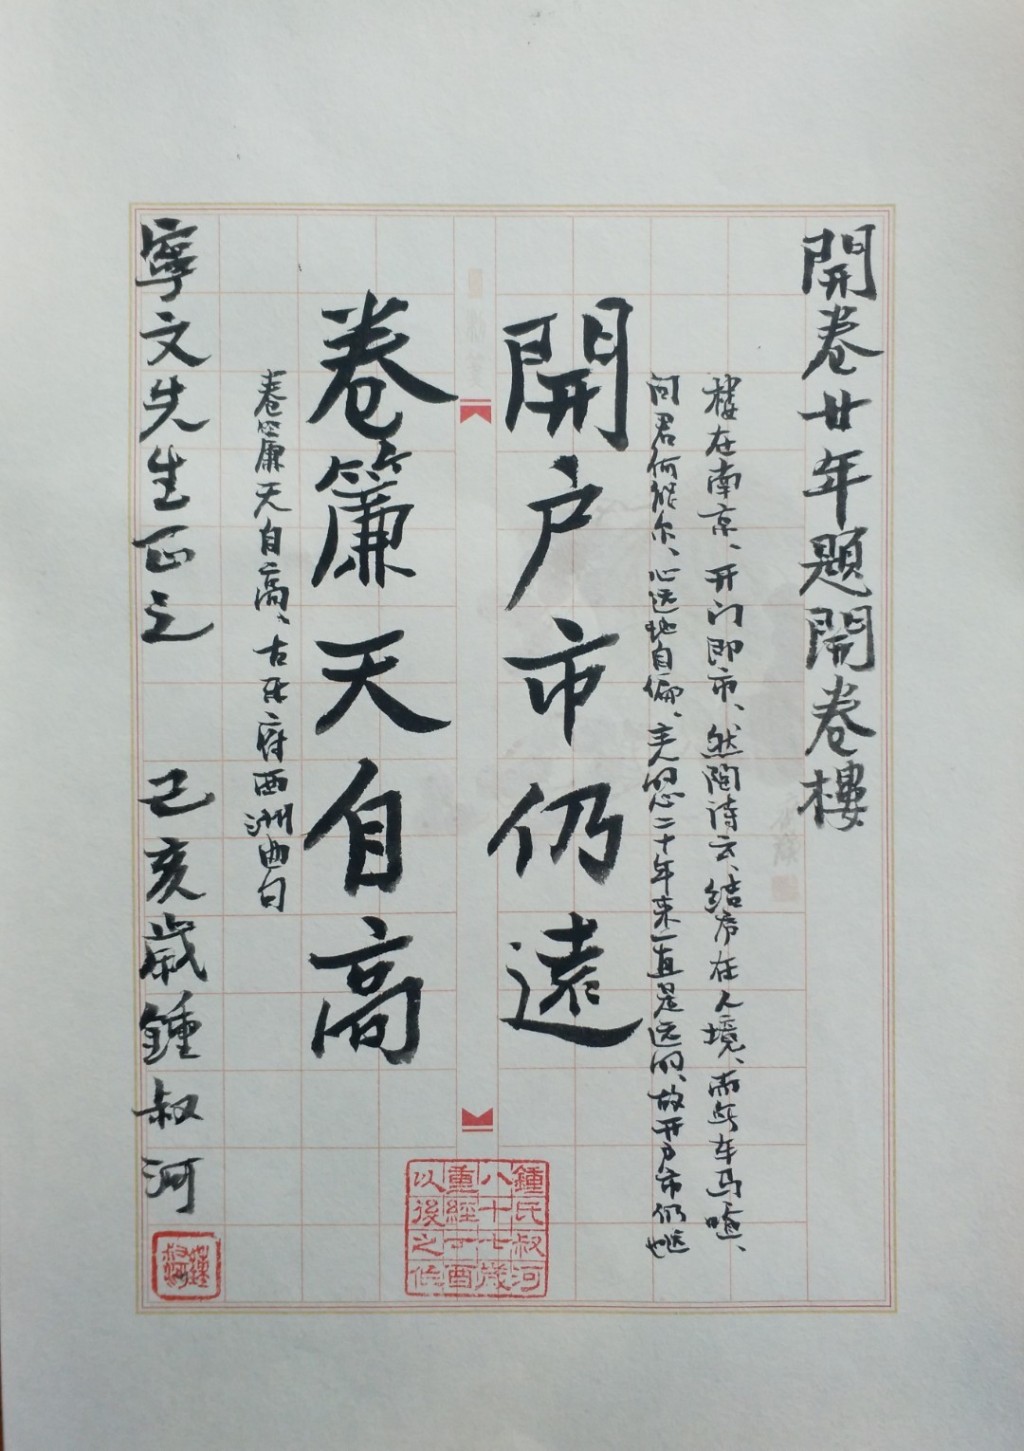 開卷廿年題開卷樓
楼在南京、开门即市、然陶诗云、结庐在人境、而无车马喧、
问君何能尔、心远地自偏、主人的心二十年来一直是远的、故开户市仍远也
開户市仍遠
卷簾天自高
卷簾天自高、古乐府西洲曲句
寧文先生正之 己亥歲鍾叔河
鍾氏叔河
八十七歲
重經丁酉
以後之作
鍾叔河